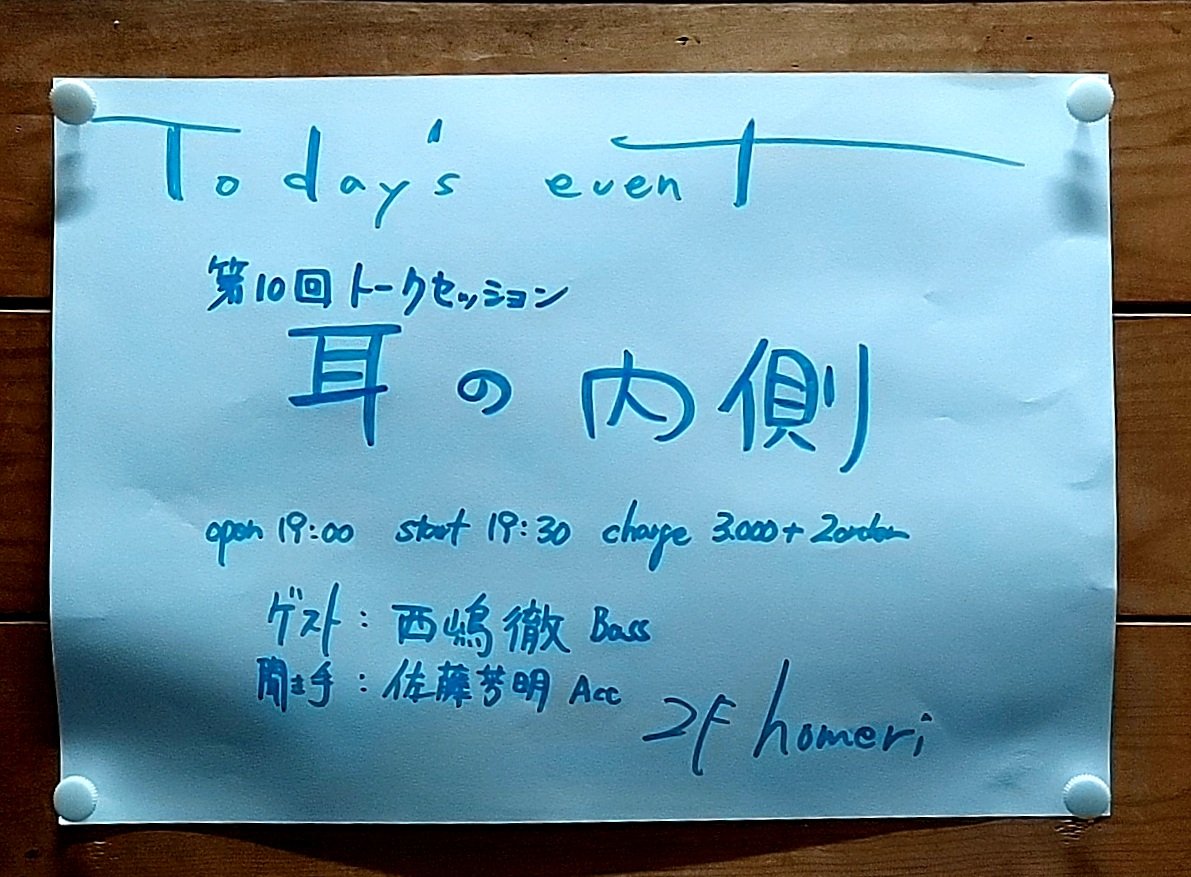 Today's event
第10回トークセッション
耳の内側
open 19:00 start 19:30 charge 3.000+2order
ゲスト：西嶋徹 Bass
聞き手：佐藤芳明 Acc
2F homeri